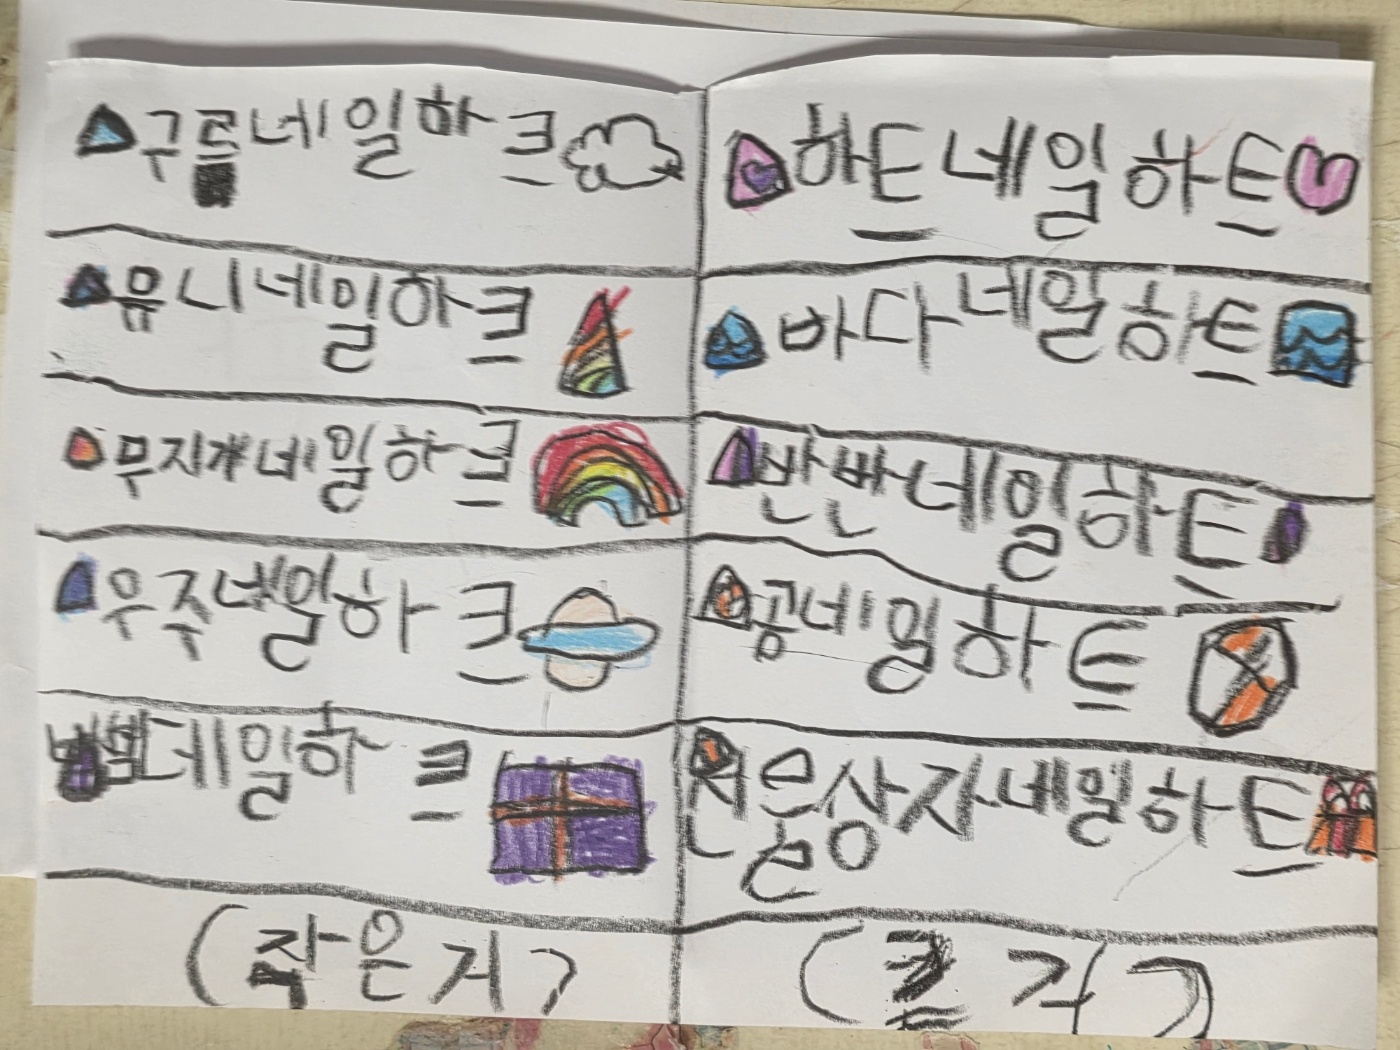 구르네일하크
유니네일하크
무지개네일하크
우주네일하크
네일하크
(작은거)
하트네일하트
바다네일하트
반반네일하트
공네일하트
선물상자네일하트
(큰거)